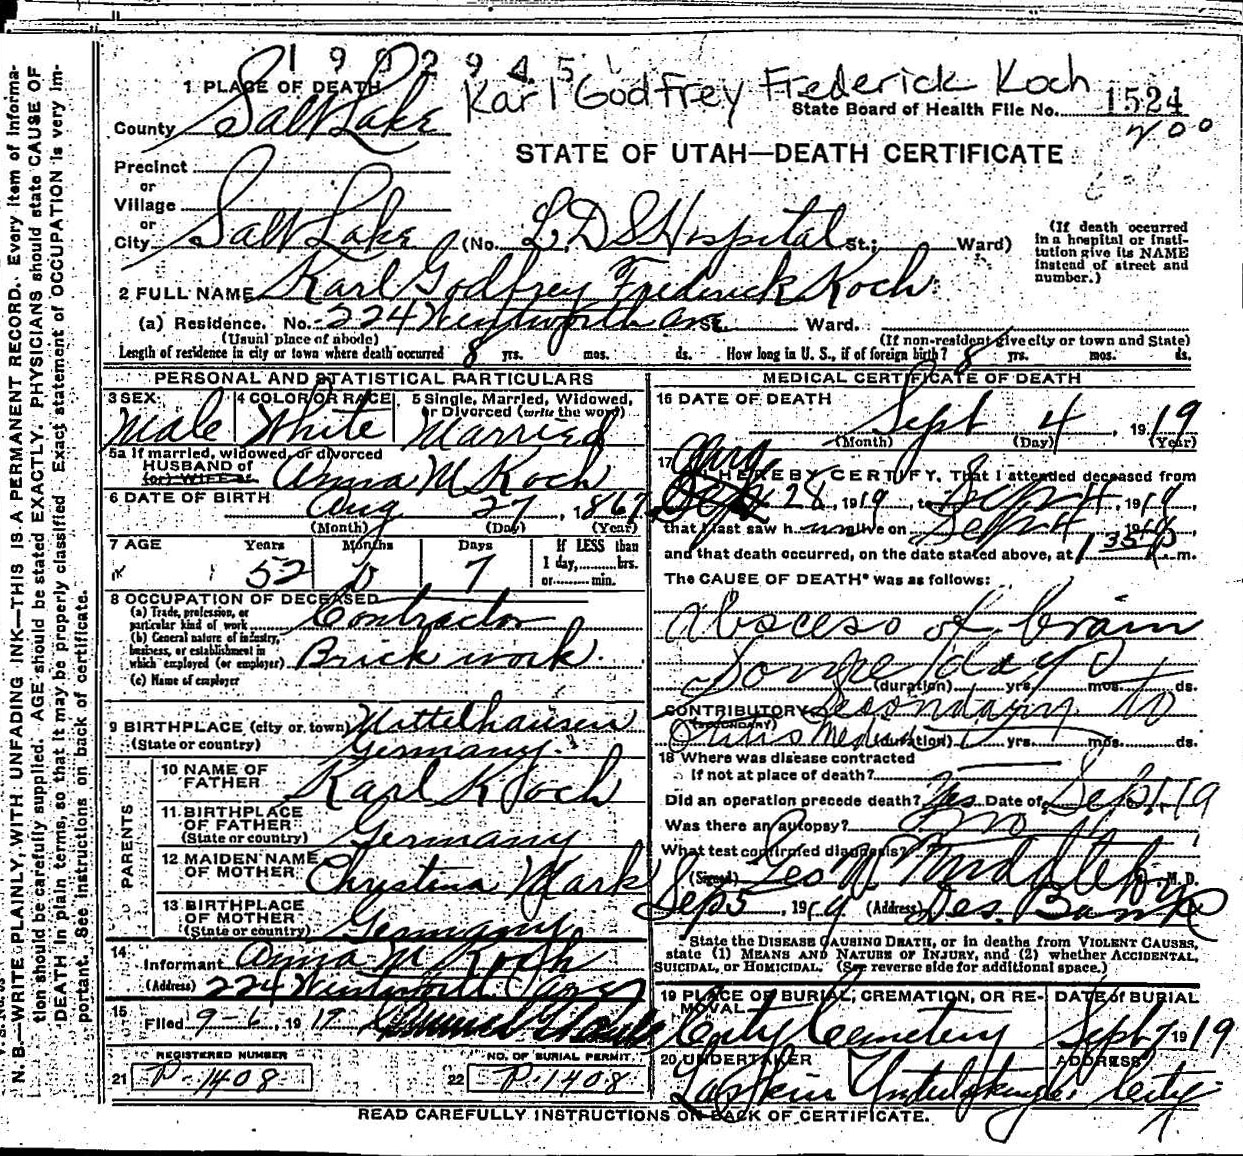 1902945
Karl Godfrey Frederick Koch
1 PLACE OF DEATH
State Board of Health File No. 1524
County Salt Lake
200
STATE OF UTAH—DEATH CERTIFICATE
Precinct
or
Village
or
City Salt Lake (No. L.D.S Hospital St.; Ward)
(If death occurred in a hospital or institution give its NAME instead of street and number.)
2 FULL NAME Karl Godfrey Frederick Koch
(a) Residence. No. 224 Wentworth Ave St. Ward.
(Usual place of abode) (If non-resident give city or town and State)
Length of residence in city or town where death occurred 8 yrs. mos. ds. How long in U. S., if of foreign birth? 8 yrs. mos. ds.
PERSONAL AND STATISTICAL PARTICULARS
3 SEX Male
4 COLOR OR RACE White
5 Single, Married, Widowed, or Divorced (write the word) Married
5a If married, widowed, or divorced
HUSBAND of
(or) WIFE of
Anna M Koch
6 DATE OF BIRTH Aug 27, 1867
(Month) (Day) (Year)
7 AGE Years Months Days If LESS than
1 day, hrs.
or min.
52 0 7
8 OCCUPATION OF DECEASED
(a) Trade, profession, or particular kind of work Contractor
(b) General nature of industry, business, or establishment in which employed (or employer) Brick work.
(c) Name of employer
9 BIRTHPLACE (city or town) Mittelhausen
(State or country) Germany.
PARENTS
10 NAME OF FATHER Karl Koch
11 BIRTHPLACE OF FATHER
(State or country) Germany
12 MAIDEN NAME OF MOTHER Christina Mark
13 BIRTHPLACE OF MOTHER
(State or country) Germany
14 Informant Anna M Koch
(Address) 224 Wentworth
15 Filed 9-6, 1919
REGISTERED NUMBER
21 P-1408
NO. OF BURIAL PERMIT.
22 P-1408
MEDICAL CERTIFICATE OF DEATH
16 DATE OF DEATH
Sept 4, 1919
(Month) (Day) (Year)
17 I HEREBY CERTIFY, That I attended deceased from
Aug 28, 1919, to Sept 4, 1919,
that I last saw h im alive on Sept 4, 1919,
and that death occurred, on the date stated above, at 1 35 P m.
The CAUSE OF DEATH* was as follows:
Abscess of brain
Some days
(duration) yrs. mos. ds.
CONTRIBUTORY Secondary to
(SECONDARY)
Otitis Media (duration) yrs. mos. ds.
18 Where was disease contracted
if not at place of death?
Did an operation precede death? Yes Date of Sept 1, 19
Was there an autopsy? no
What test confirmed diagnosis?
(Signed) Geo W Middleton, M. D.
Sep 5, 1919 (Address) Des. Bank
*State the DISEASE CAUSING DEATH, or in deaths from VIOLENT CAUSES, state (1) MEANS AND NATURE OF INJURY, and (2) whether ACCIDENTAL, SUICIDAL, or HOMICIDAL. (See reverse side for additional space.)
19 PLACE OF BURIAL, CREMATION, OR REMOVAL
City Cemetery
DATE of BURIAL
Sept 7 1919
20 UNDERTAKER
ADDRESS
City
READ CAREFULLY INSTRUCTIONS ON BACK OF CERTIFICATE.
N. B.—WRITE PLAINLY, WITH UNFADING INK—THIS IS A PERMANENT RECORD. Every item of information should be carefully supplied. AGE should be stated EXACTLY. PHYSICIANS should state CAUSE OF DEATH in plain terms, so that it may be properly classified. Exact statement of OCCUPATION is very important. See instructions on back of certificate.